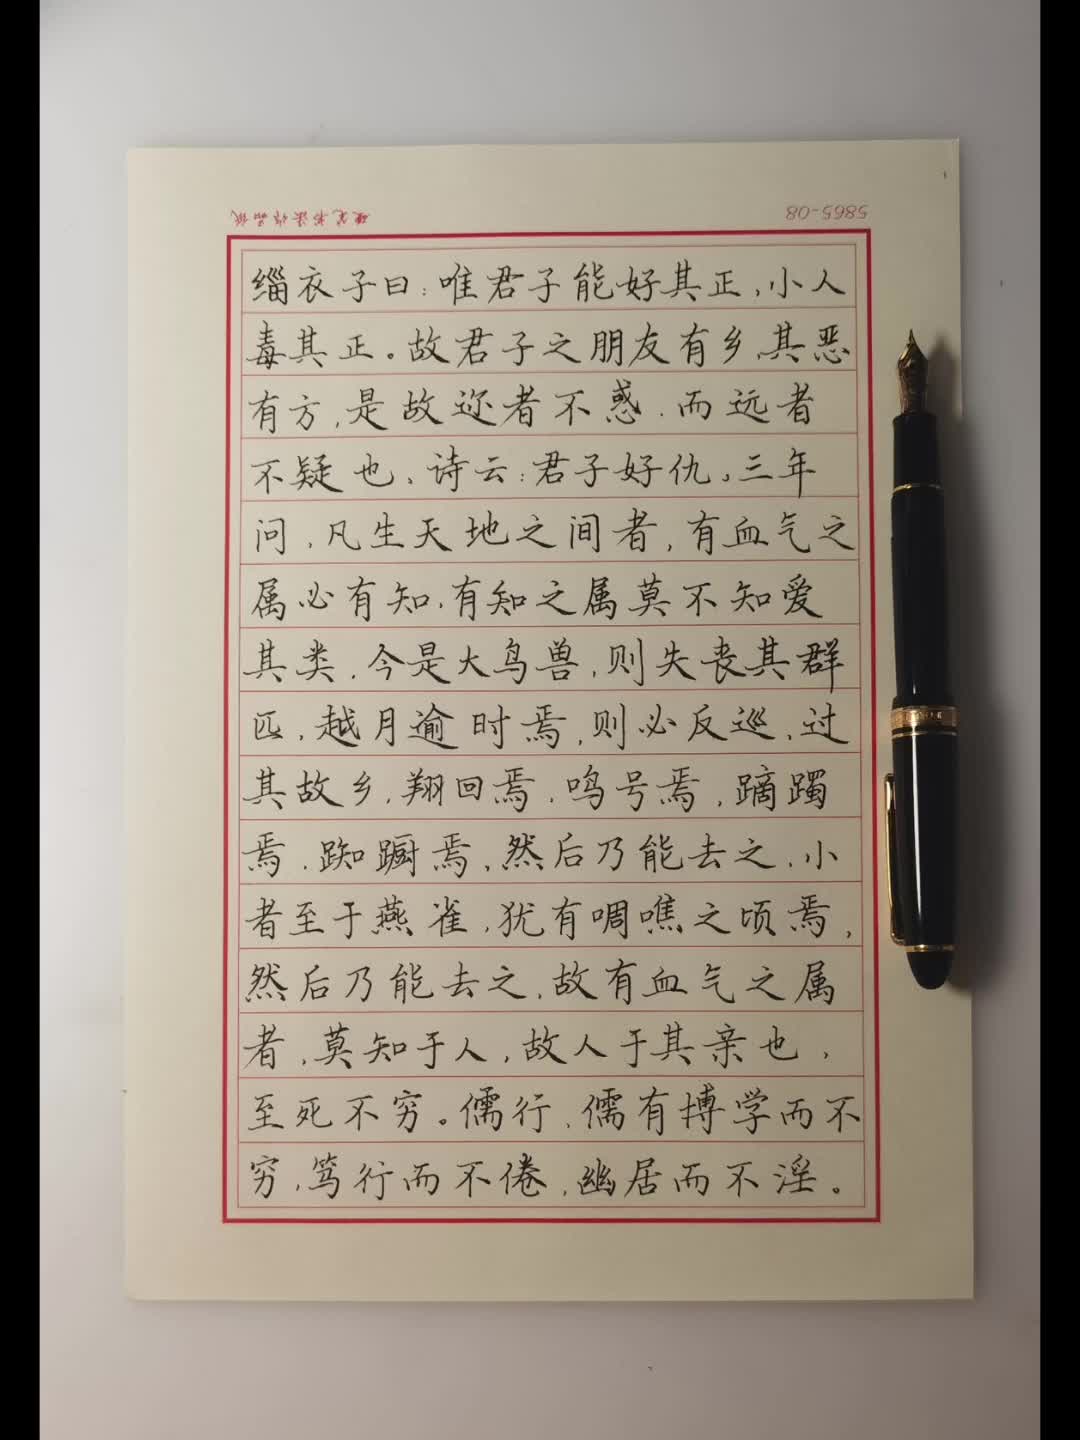 硬笔书法作品纸
5865-08
缁衣子曰：唯君子能好其正，小人
毒其正。故君子之朋友有乡，其恶
有方，是故迩者不惑，而远者
不疑也，诗云：君子好仇。三年
问，凡生天地之间者，有血气之
属必有知，有知之属莫不知爱
其类，今是大鸟兽，则失丧其群
匹，越月逾时焉，则必反巡，过
其故乡，翔回焉，鸣号焉，蹢躅
焉，踟蹰焉，然后乃能去之，小
者至于燕雀，犹有啁噍之顷焉，
然后乃能去之，故有血气之属
者，莫知于人，故人于其亲也，
至死不穷。儒行，儒有博学而不
穷，笃行而不倦，幽居而不淫。